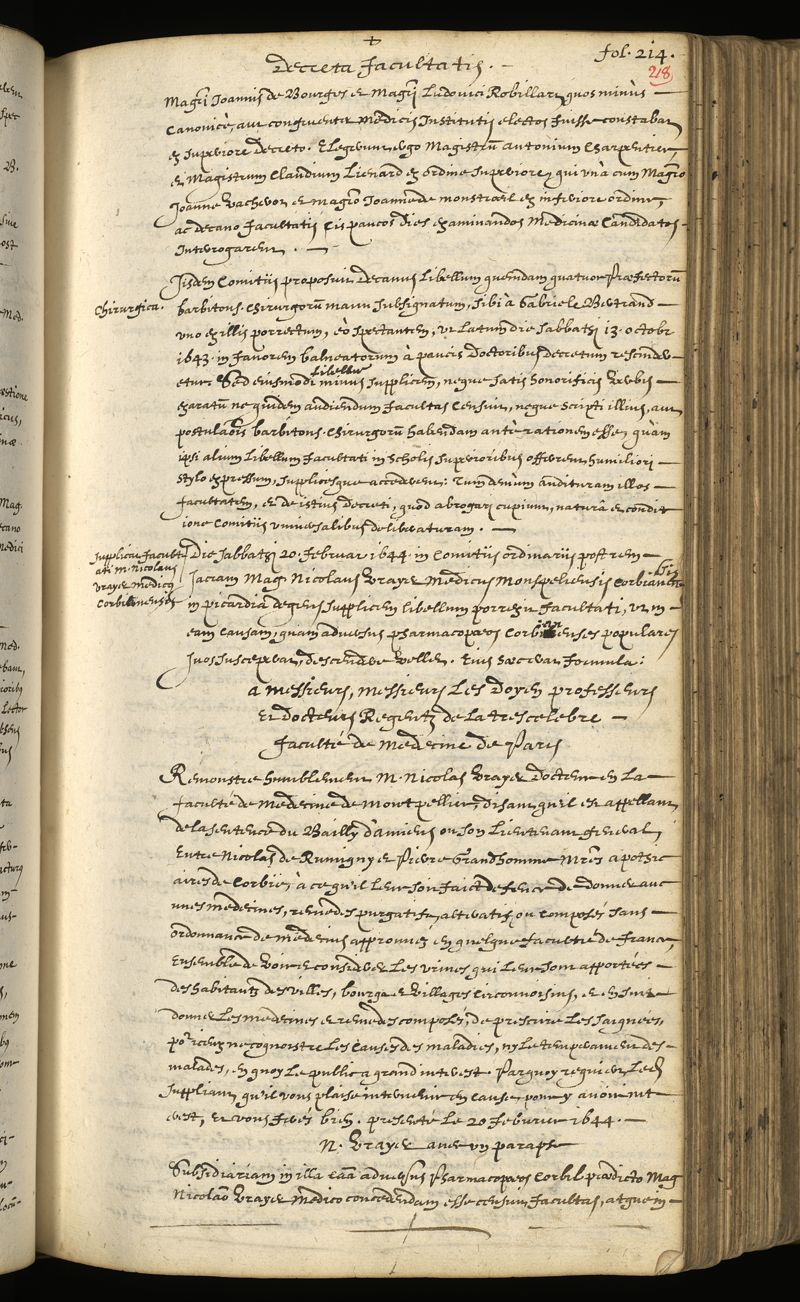 fol. 214.
218
Decreta facultatis. -
Magri Joannis de Bourges et Magri Ludovici Robillart, quos minus
Canonicè, aut congruenter Medicis Institutis electos fuisse constabat
ex superiore decreto. Elegerunt ergo Magistrum Antonium Charpentier,
et Magistrum Claudium Lienard ex ordine superiore, qui unà cum Magro
Joanne Vacherot et Magro Joanne de Monstroeil ex inferiore ordine,
ac decano facultatis cis paucos dies examinandos Medicinæ Candidatos
Interrogarent. -
Chirurgica.
Jisdem Comitiis proposuit decanus libellum quemdam quatuor Præfectorū
barbitons. chirurgorū manu subsignatum, sibi à Gabriele Bertrand
uno ex illis porrectum, eò spectantem, ut latum die sabbathi 13. octobr
1643. in favorem balneatorum à paucis doctoribus decretum rescinder-
etur. Sed eiusmodi libellum minus supplicem, neque satis honorificis verbis
exaratū ne quidem audiendum facultas censuit, neque scripti illius, aut
postulatiōis barbitons. chirurgorū habendam antè rationem esse, quàm
ipsi alium libellum facultati in scholis superioribus offerrent humiliori
stylo expressum, supplicesque accederent: Tum demùm audituram illos
facultatem, et de istius decreti, quod abrogari cupiunt, naturâ et condit
ione Comitiis universalibus deliberaturam. -
Supplicat facult
ati M. Nicolaus
Brayer medicus
Corbiensis
Die Sabbathi 20. Februar. 1644. in Comitiis ordinariis post rem
sacram Mag. Nicolaus Brayer Medicus Monspeliensis Corbiæ
in picardiâ degens supplicem libellum porrexit facultati, ut in
eam causam, quam adversus pharmacopæos Corbienses populares
suos susceperat, descendere vellet. Eius hæc erat formula:
A Messieurs, Messieurs Les Doyen professeurs
Et docteurs Regentz de la trescelebre
faculté de Medecine de Paris
Remonstre humblement M. Nicolas Brayer docteur en La
faculté de Medecine de Montpellier, disant qu'il est appellant
de la sentence du Bailly d'amiens ou son Lieutenant general,
Entre Nicolas de Rumigny et Pierre Grandhomme Mres apothic
aires de Corbie, à ce qu'il leur soit faict defence de donner auc
unes medecines, remedes purgatifs, alteratifs, ou composés sans
ordonnance de medecins approuvez en quelque faculté de France,
Ensemble de voir et considerer les urines qui leur sont apportées
des habitantz des villes, bourgs et villages circonvoisins, et en suite
donner les medecines et remedes composés, de prescrire les saignees,
pour iceux ne cognoistre les causes des maladies, ny le temperament des
malades, en quoy le public a grand interest. Parquoy requiert ledt
suppliant, qu'il vous plaise intervenir en cause, pour y avoir int
erest, et vous ferés bien. presenté le 20 Feburier 1644. -
N. Brayer avec un paraphe
Subsidiariam in illa caā adversus Pharmacopæos Corbi. prædicto Mag
Nicolao Brayer Medico concedendam esse censuit facultas, atque in